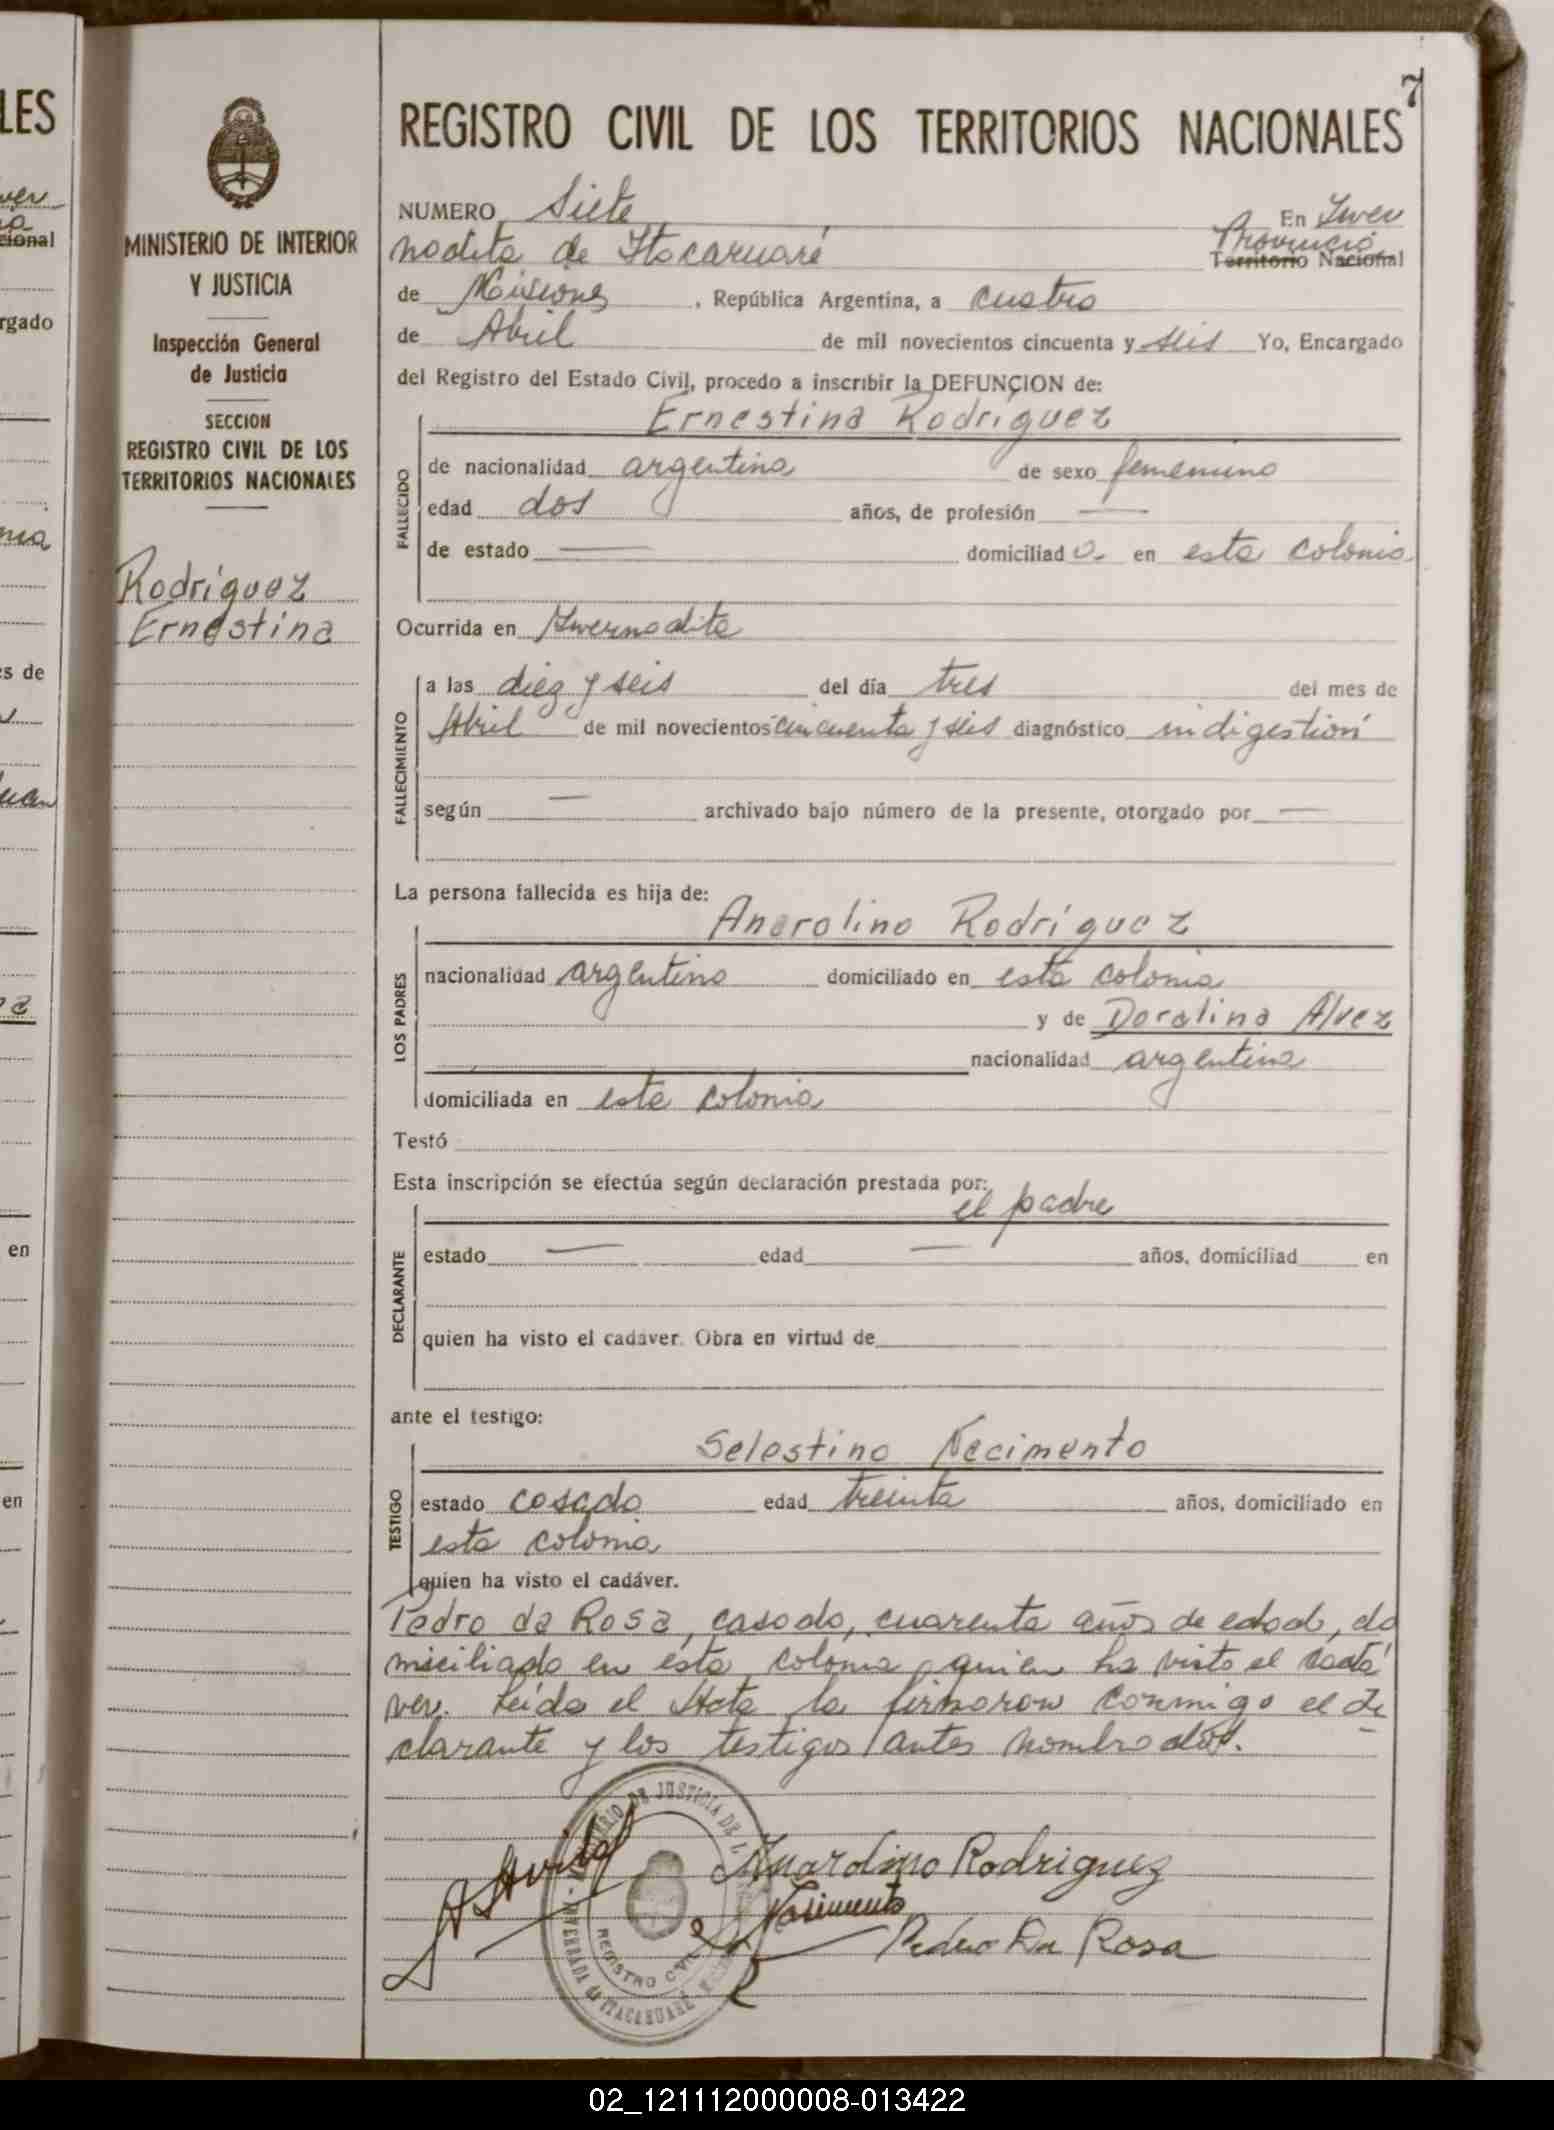 7
REGISTRO CIVIL DE LOS TERRITORIOS NACIONALES
MINISTERIO DE INTERIOR
Y JUSTICIA
Inspección General
de Justicia
SECCION
REGISTRO CIVIL DE LOS
TERRITORIOS NACIONALES
Rodríguez
Ernestina
NUMERO Siete En Inver
nadita de Itacaruaré Provincia Territorio Nacional
de Misiones, República Argentina, a cuatro
de Abril de mil novecientos cincuenta y seis Yo, Encargado
del Registro del Estado Civil, procedo a inscribir la DEFUNCION de:
Ernestina Rodríguez
FALLECIDO
de nacionalidad argentina de sexo femenino
edad dos años, de profesión —
de estado — domiciliad a en esta colonia
Ocurrida en Invernadita
FALLECIMIENTO
a las diez y seis del día tres del mes de
Abril de mil novecientos cincuenta y seis diagnóstico indigestión
según — archivado bajo número de la presente, otorgado por —
La persona fallecida es hija de:
LOS PADRES
Anarolino Rodríguez
nacionalidad argentino domiciliado en esta colonia
y de Doralina Alvez
nacionalidad argentina
domiciliada en esta colonia
Testó
Esta inscripción se efectúa según declaración prestada por:
el padre
DECLARANTE
estado — edad — años, domiciliad en
quien ha visto el cadáver. Obra en virtud de
ante el testigo:
Selestino Necimento
TESTIGO
estado casado edad treinta años, domiciliado en
esta colonia
quien ha visto el cadáver.
Pedro da Rosa, casado, cuarenta años de edad, do
miciliado en esta colonia, quien ha visto el cadá
ver. Leída el Acta la firmaron conmigo el de
clarante y los testigos antes nombrados.
Anarolino Rodriguez
Nasimento
Pedro Da Rosa
REGISTRO CIVIL
02_121112000008-013422